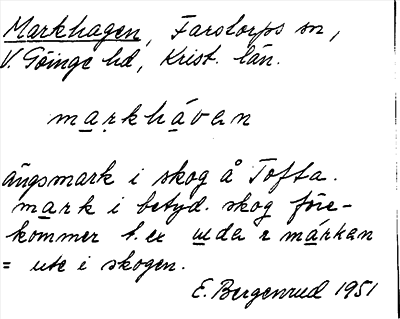 Markhagen, Farstorps sn,
V. Göinge hd, Krist. län.
markháven
ängsmark i skog å Tofta.
mark i betyd. skog före-
kommer t.ex i márkan
= ute i skogen.
E. Bergenrud 1951